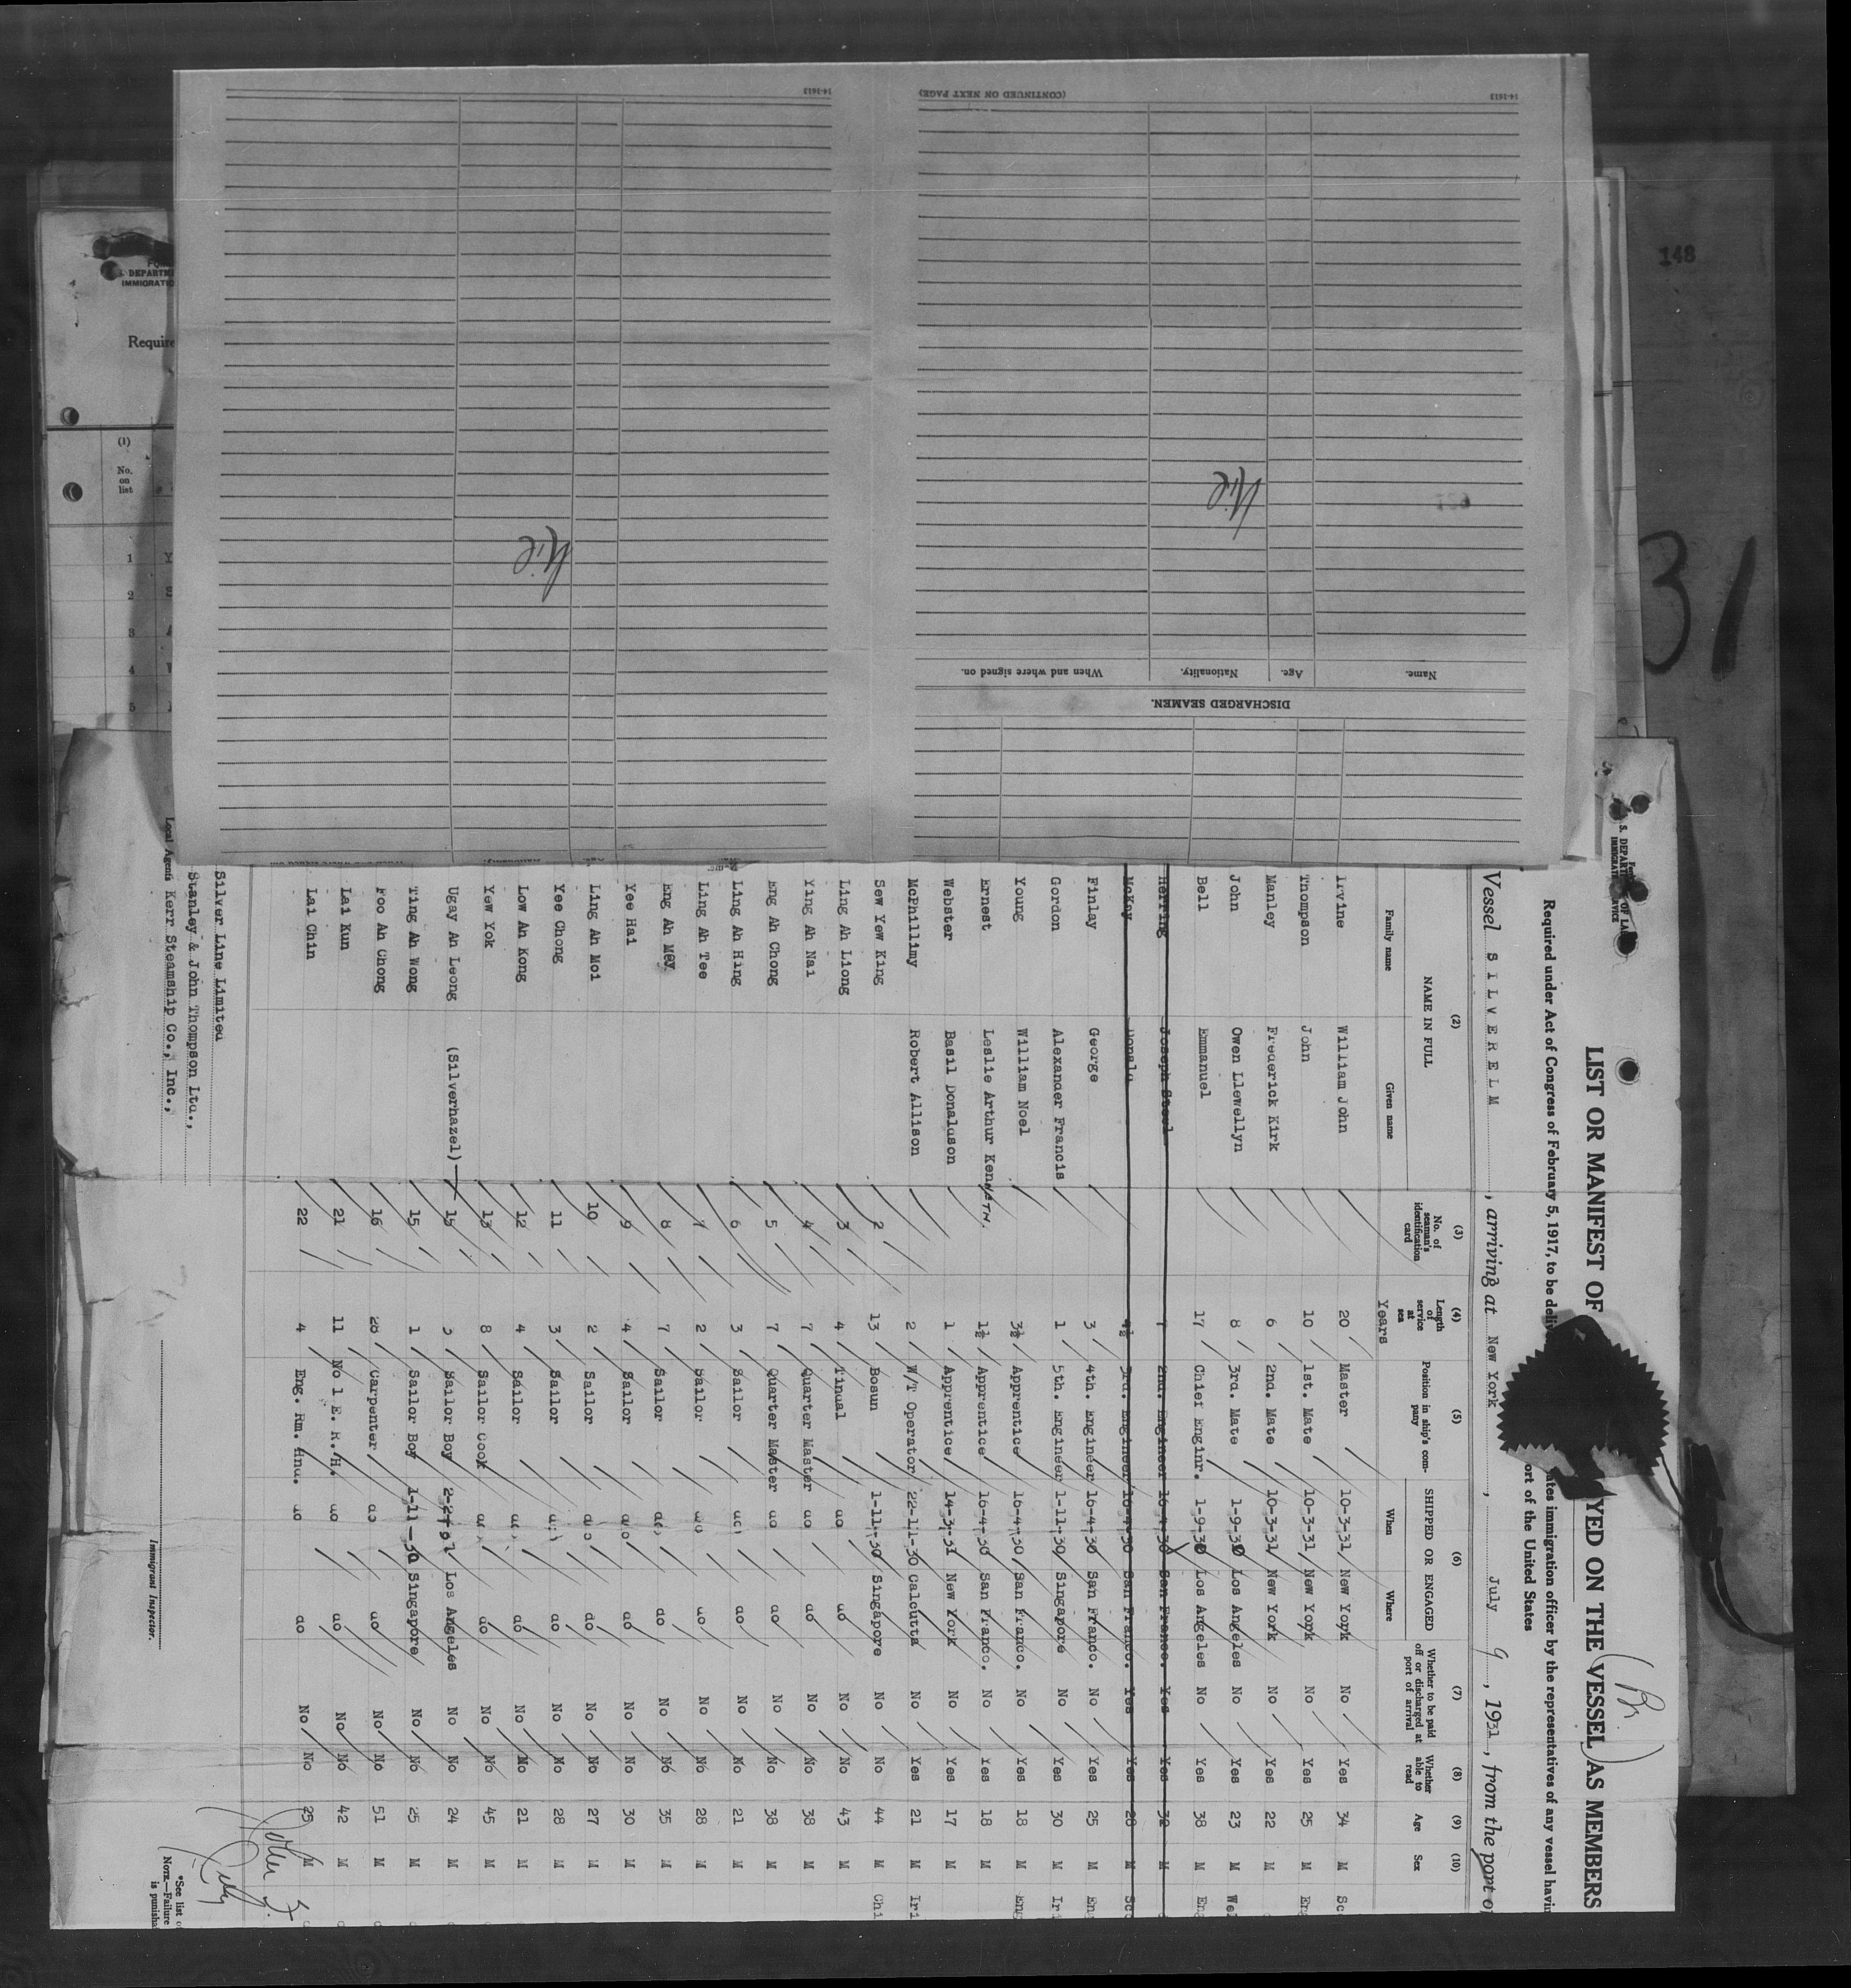 14-1613
(CONTINUED ON NEXT PAGE)
14-1613
Nil
Nil
Name.
Age.
Nationality.
When and where signed on.
DISCHARGED SEAMEN.
148
31
Require
(1)
No.
on
list
1
2
3
4
5
LIST OR MANIFEST OF YED ON THE VESSEL AS MEMBERS
(Br)
Required under Act of Congress of February 5, 1917, to be deliv ates immigration officer by the representatives of any vessel havin
ort of the United States
Vessel SILVERELM, arriving at New York, July 9, 1931, from the port of
(2) (3) (4) (5) (6) (7) (8) (9) (10)
NAME IN FULL
Family name Given name
No. of seaman's identification card
Length of service at sea
Years
Position in ship's company
SHIPPED OR ENGAGED
When Where
Whether to be paid off or discharged at port of arrival
Whether able to read
Age Sex
Irvine William John 20 Master 10-3-31 New York No Yes 34 M Sc
Thompson John 10 1st. Mate 10-3-31 New York No Yes 25 M En
Manley Frederick Kirk 6 2nd. Mate 10-3-31 New York No Yes 22 M
John Owen Llewellyn 8 3rd. Mate 1-9-30 Los Angeles No Yes 23 M Wel
Bell Emmanuel 17 Chief Enginr. 1-9-30 Los Angeles No Yes 38 M Eng
Herring Joseph Steel 7 2nd. Engineer 16-4-30 San Franco. Yes Yes 32 M
McKay Donald 4½ 3rd. Engineer 16-4-30 San Franco. Yes Yes 28 M Sc
Finlay George 3 4th. Engineer 16-4-30 San Franco. No Yes 25 M Eng
Gordon Alexander Francis 1 5th. Engineer 1-11-30 Singapore No Yes 30 M Iri
Young William Noel 3½ Apprentice 16-4-30 San Franco. No Yes 18 M Eng
Ernest Leslie Arthur KenNETH. 1½ Apprentice 16-4-30 San Franco. No Yes 18 M
Webster Basil Donaldson 1 Apprentice 14-3-31 New York No Yes 17 M
McPhillimy Robert Allison 2 W/T Operator 22-11-30 Calcutta No Yes 21 M Iri
Sew Yew King 2 13 Bosun 1-11-30 Singapore No No 44 M Chi
Ling Ah Liong 3 4 Tindal do do No No 43 M
Ying Ah Nai 4 7 Quarter Master do do No No 38 M
Eng Ah Chong 5 7 Quarter Master do do No No 38 M
Ling Ah Hing 6 3 Sailor do do No No 21 M
Ling Ah Tee 7 2 Sailor do do No No 28 M
Eng Ah Mey 8 7 Sailor do do No No 35 M
Yee Hai 9 4 Sailor do do No No 30 M
Ling Ah Moi 10 2 Sailor do do No No 27 M
Yee Chong 11 3 Sailor do do No No 28 M
Low Ah Kong 12 4 Sailor do do No No 21 M
Yew Yok 13 8 Sailor Cook do do No No 45 M
Ugay Ah Leong (Silverhazel) 15 3 Sailor Boy Los Angeles No No 24 M
Ting Ah Wong 15 1 Sailor Boy 1-11-30 Singapore No No 25 M
Foo Ah Chong 16 28 Carpenter do do No No 51 M
Lai Kun 21 11 No 1 E. R. H. do do No No 42 M
Lai Chin 22 4 Eng. Rm. Hnd. do do No No 25 M
Silver Line Limited
Stanley & John Thompson Ltd.,
Local Agents Kerr Steamship Co., Inc.,
Immigrant Inspector.
*See list
NOTE.—Failure
is punisha